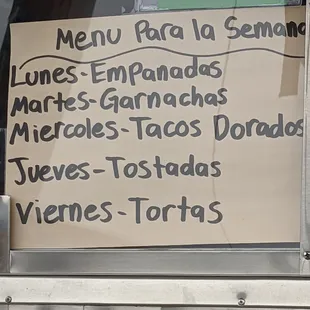 Menu Para la Semana
Lunes-Empanadas
Martes-Garnachas
Miercoles-Tacos Dorados
Jueves-Tostadas
Viernes-Tortas